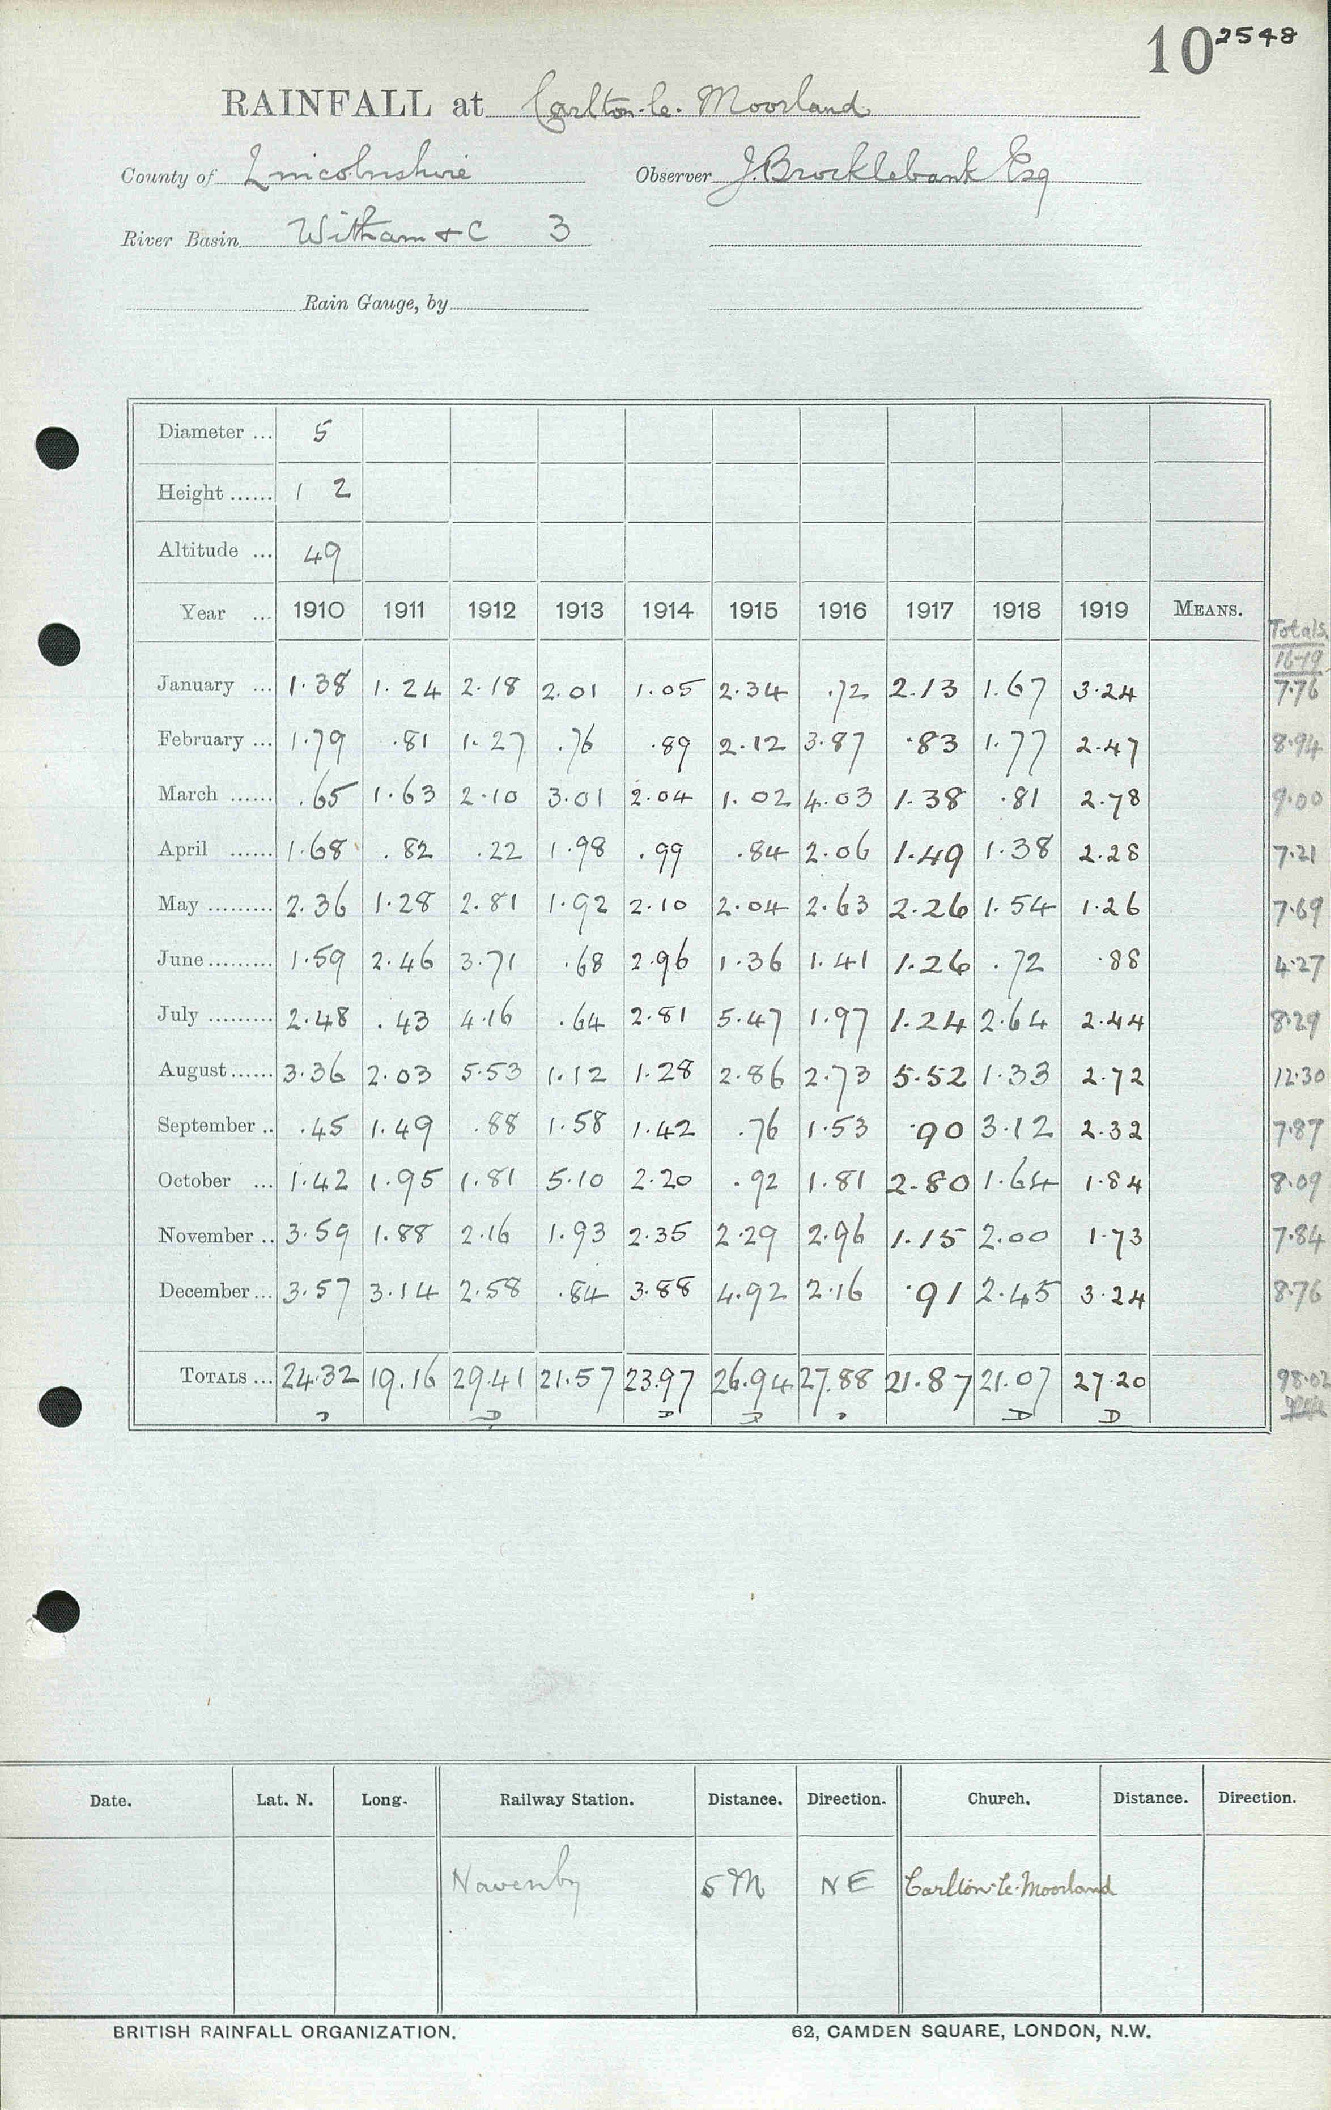 10 2548
RAINFALL at Carlton-le-Moorland
County of Lincolnshire Observer J. Brocklebank Esq
River Basin Witham & C 3
Rain Gauge, by
Diameter ... 5
Height ...... 1 2
Altitude ... 49
Year ... 1910 1911 1912 1913 1914 1915 1916 1917 1918 1919 MEANS. Totals 16-19
January ... 1.38 1.24 2.18 2.01 1.05 2.34 .72 2.13 1.67 3.24 7.76
February ... 1.79 .81 1.27 .76 .89 2.12 3.87 .83 1.77 2.47 8.94
March ...... .65 1.63 2.10 3.01 2.04 1.02 4.03 1.38 .81 2.78 9.00
April ...... 1.68 .82 .22 1.98 .99 .84 2.06 1.49 1.38 2.28 7.21
May ......... 2.36 1.28 2.81 1.92 2.10 2.04 2.63 2.26 1.54 1.26 7.69
June ......... 1.59 2.46 3.71 .68 2.96 1.36 1.41 1.26 .72 .88 4.27
July ......... 2.48 .43 4.16 .64 2.81 5.47 1.97 1.24 2.64 2.44 8.29
August ...... 3.36 2.03 5.53 1.12 1.28 2.86 2.73 5.52 1.33 2.72 12.30
September .. .45 1.49 .88 1.58 1.42 .76 1.53 .90 3.12 2.32 7.87
October ... 1.42 1.95 1.81 5.10 2.20 .92 1.81 2.80 1.64 1.84 8.09
November .. 3.59 1.88 2.16 1.93 2.35 2.29 2.96 1.15 2.00 1.73 7.84
December ... 3.57 3.14 2.58 .84 3.88 4.92 2.16 .91 2.45 3.24 8.76
TOTALS ... 24.32 19.16 29.41 21.57 23.97 26.94 27.88 21.87 21.07 27.20 98.02
D D D D D D D
Date. Lat. N. Long. Railway Station. Distance. Direction. Church. Distance. Direction.
Navenby 5 M NE Carlton-le-Moorland
BRITISH RAINFALL ORGANIZATION. 62, CAMDEN SQUARE, LONDON, N.W.